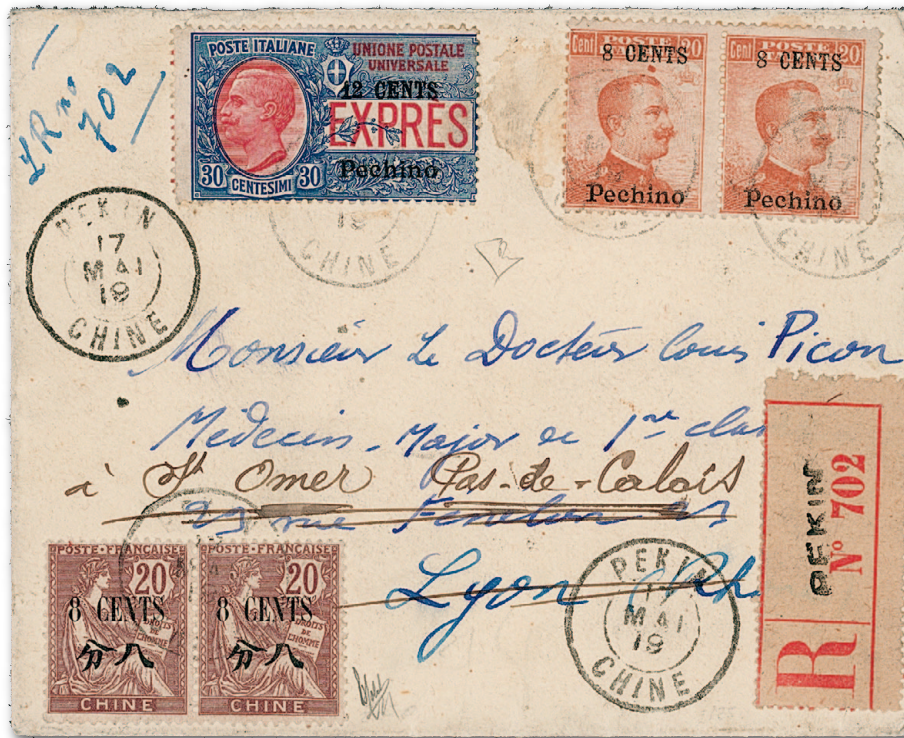 LR n°
702
POSTE ITALIANE
UNIONE POSTALE
UNIVERSALE
12 CENTS
EXPRÈS
Pechino
30 CENTESIMI 30
Cent POSTE 20
8 CENTS
Pechino
Cent POSTE 20
8 CENTS
Pechino
PEKIN
17
MAI
19
CHINE
19
CHINE
CHINE
Monsieur Le Docteur Louis Picon
Médecin-Major de 1re clas
à St Omer Pas-de-Calais
29 rue Fénelon
Lyon
R
PEKIN
N° 702
POSTE FRANÇAISE
20
8 CENTS
DROITS
DE
L'HOMME
分八
CHINE
POSTE FRANÇAISE
20
8 CENTS
DROITS
DE
L'HOMME
分八
CHINE
PEKIN
17
MAI
19
CHINE